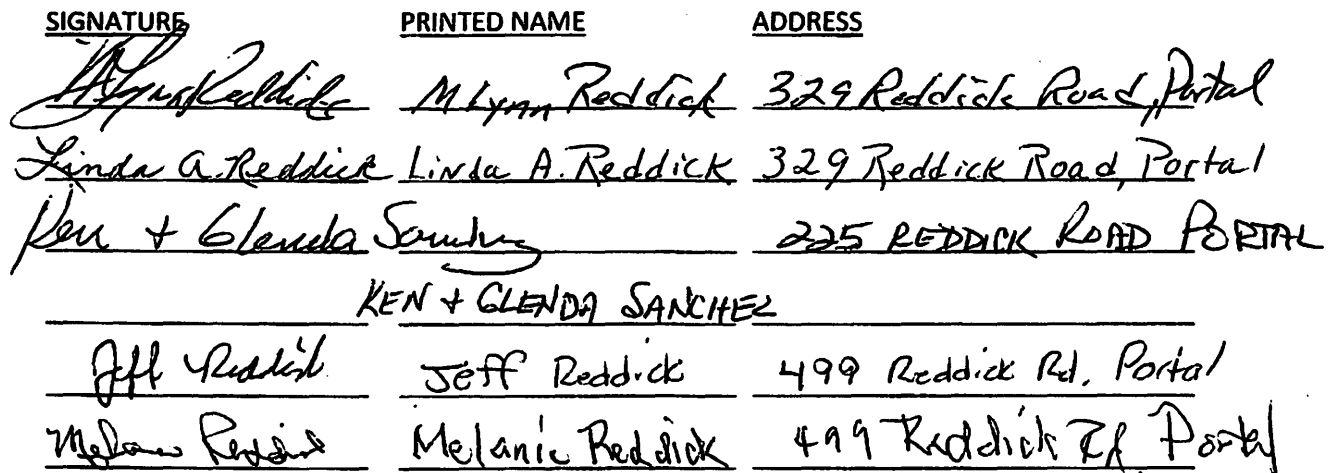 SIGNATURE PRINTED NAME ADDRESS
M Lynn Reddick M Lynn Reddick 329 Reddick Road, Portal
Linda A. Reddick Linda A. Reddick 329 Reddick Road, Portal
Ken + Glenda Sanchez 225 REDDICK ROAD PORTAL
KEN + GLENDA SANCHEZ
Jeff Reddick Jeff Reddick 499 Reddick Rd. Portal
Melanie Reddick Melanie Reddick 499 Reddick Rd Portal